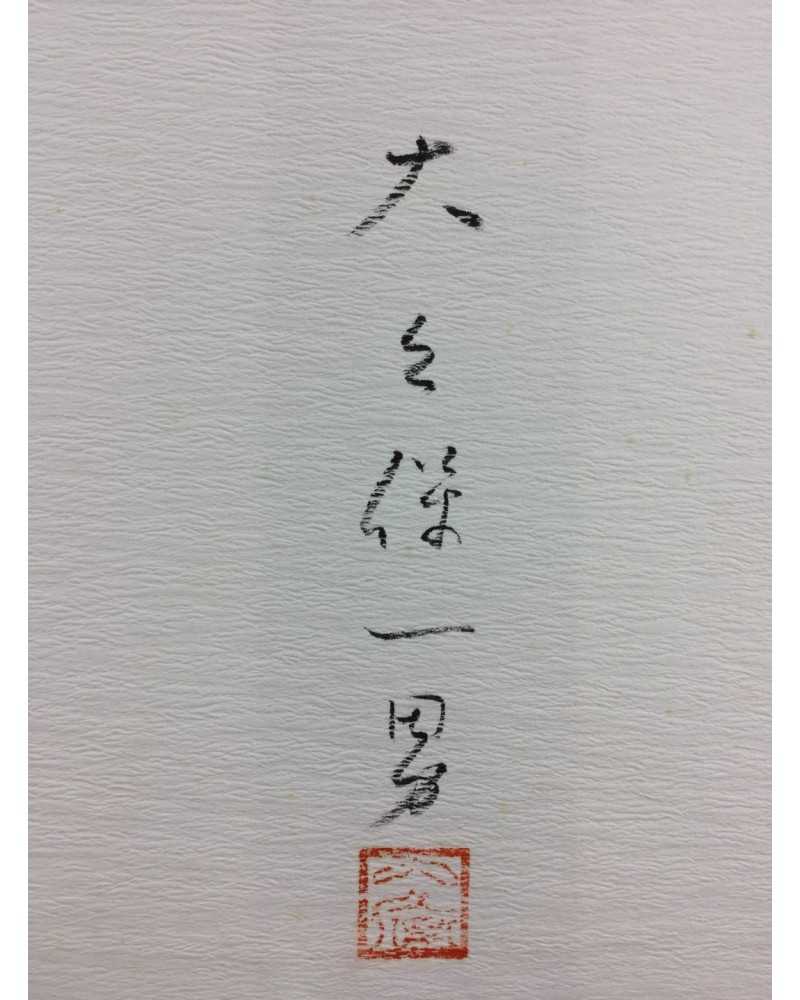 大久保一男